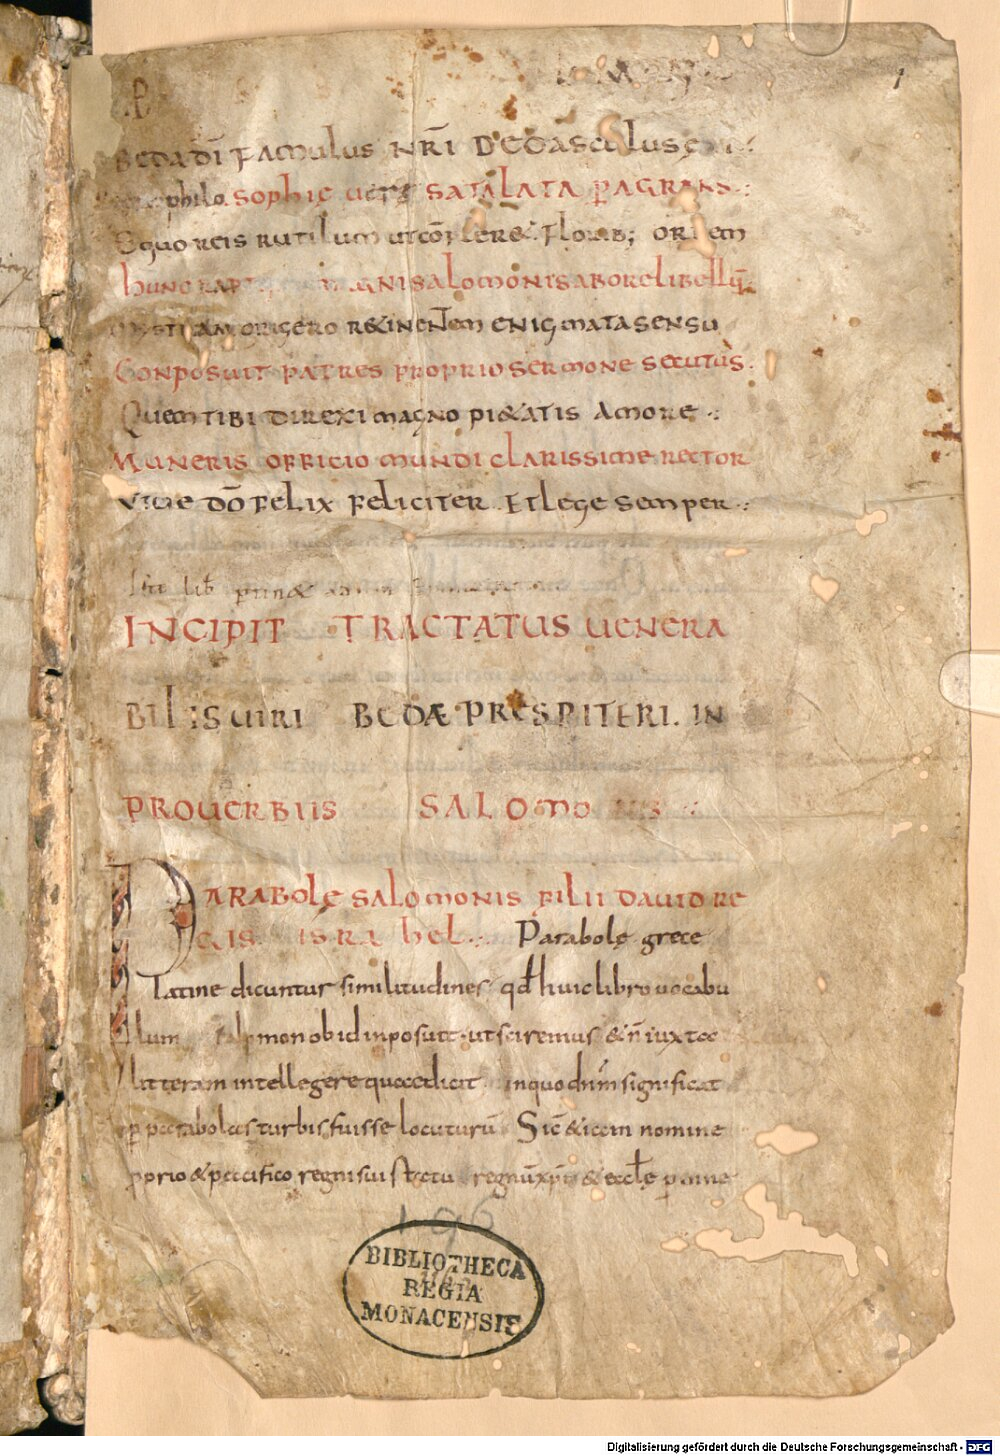 1
BEDA DĪ FAMULUS NR̄I DEDASCULUS
philosophie uere SATALATA PAGRANS.:
Equoreis rutilum ut cōplere& floᵬ; orbem
hunc magni salomonis ab ore libellū.
origero r&inentem enigmata sensu
Conposuit patres proprio sermone secutus.
Quem tibi direxi magno pi&atis amore .:
Muneris officio mundi clarissime rector
Viue dō felix feliciter et lege semper .:
Iste lib̄
INCIPIT TRACTATUS UENERA
BILIS UIRI BEDÆ PRESPITERI. IN
PROUERBIIS SALOMO NIS .:
PARABOLĘ SALOMONIS FILII DAUID RE
GIS ISRAHEL .:. Parabolę grece
Latine dicuntur similitudines qđ huic libro uocabu
lum salomon ob id inposuit. ut sciremus &n̄ iuxta
litteram intellegere quae dicit in quo dn̄m significat
ꝑ parabolas turbis fuisse locuturū Sic̄ & idem nomine
ꝓprio & pacifico regni sui statu regnū xp̄i & eccłę
196
BIBLIOTHECA
REGIA
MONACENSIS
Digitalisierung gefördert durch die Deutsche Forschungsgemeinschaft - DFG